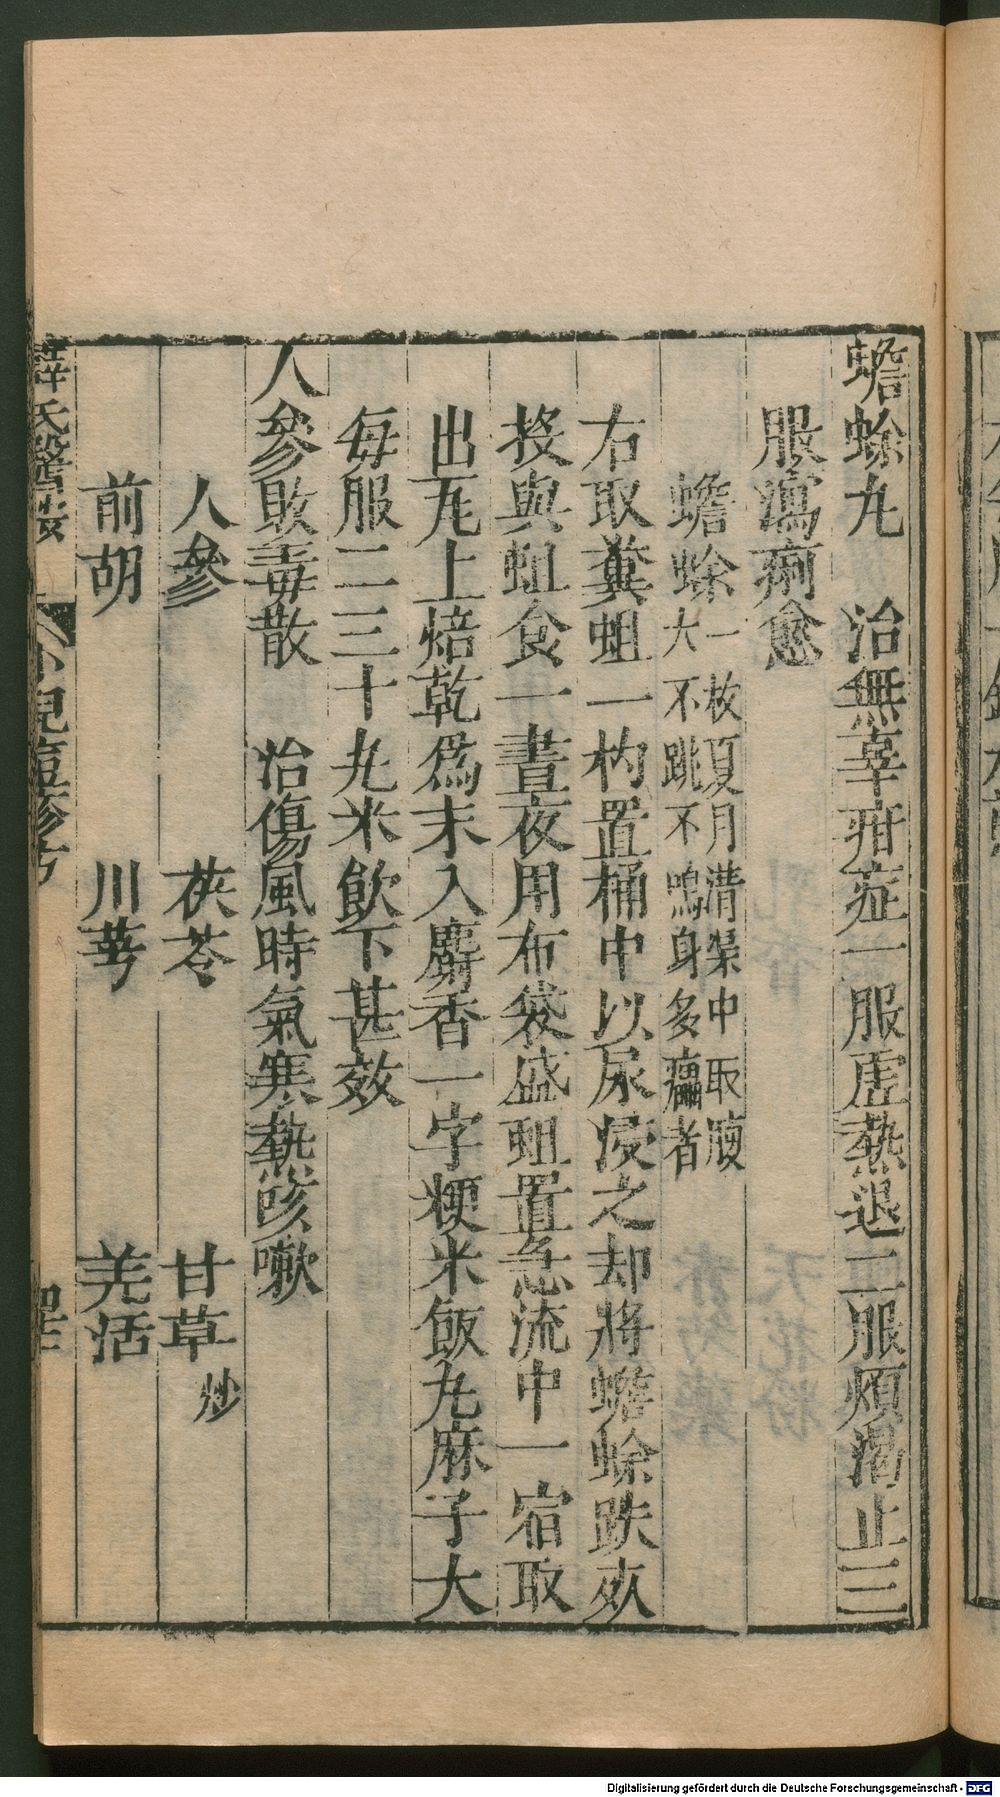 蟾蜍丸　治無辜疳症一服虛熱退二服煩渴止三
服瀉痢愈
蟾蜍一枚夏月溝渠中取腹大不跳不鳴身多癩者
右取糞蛆一杓置桶中以尿浸之却將蟾蜍跌死
投與蛆食一晝夜用布袋盛蛆置急流中一宿取
出瓦上焙乾爲末入麝香一字粳米飯丸麻子大
每服二三十丸米飲下甚效
人參敗毒散　治傷風時氣寒熱咳嗽
人參　茯苓　甘草炒
前胡　川芎　羌活
薛氏醫按　小兒痘疹方
Digitalisierung gefördert durch die Deutsche Forschungsgemeinschaft - DFG